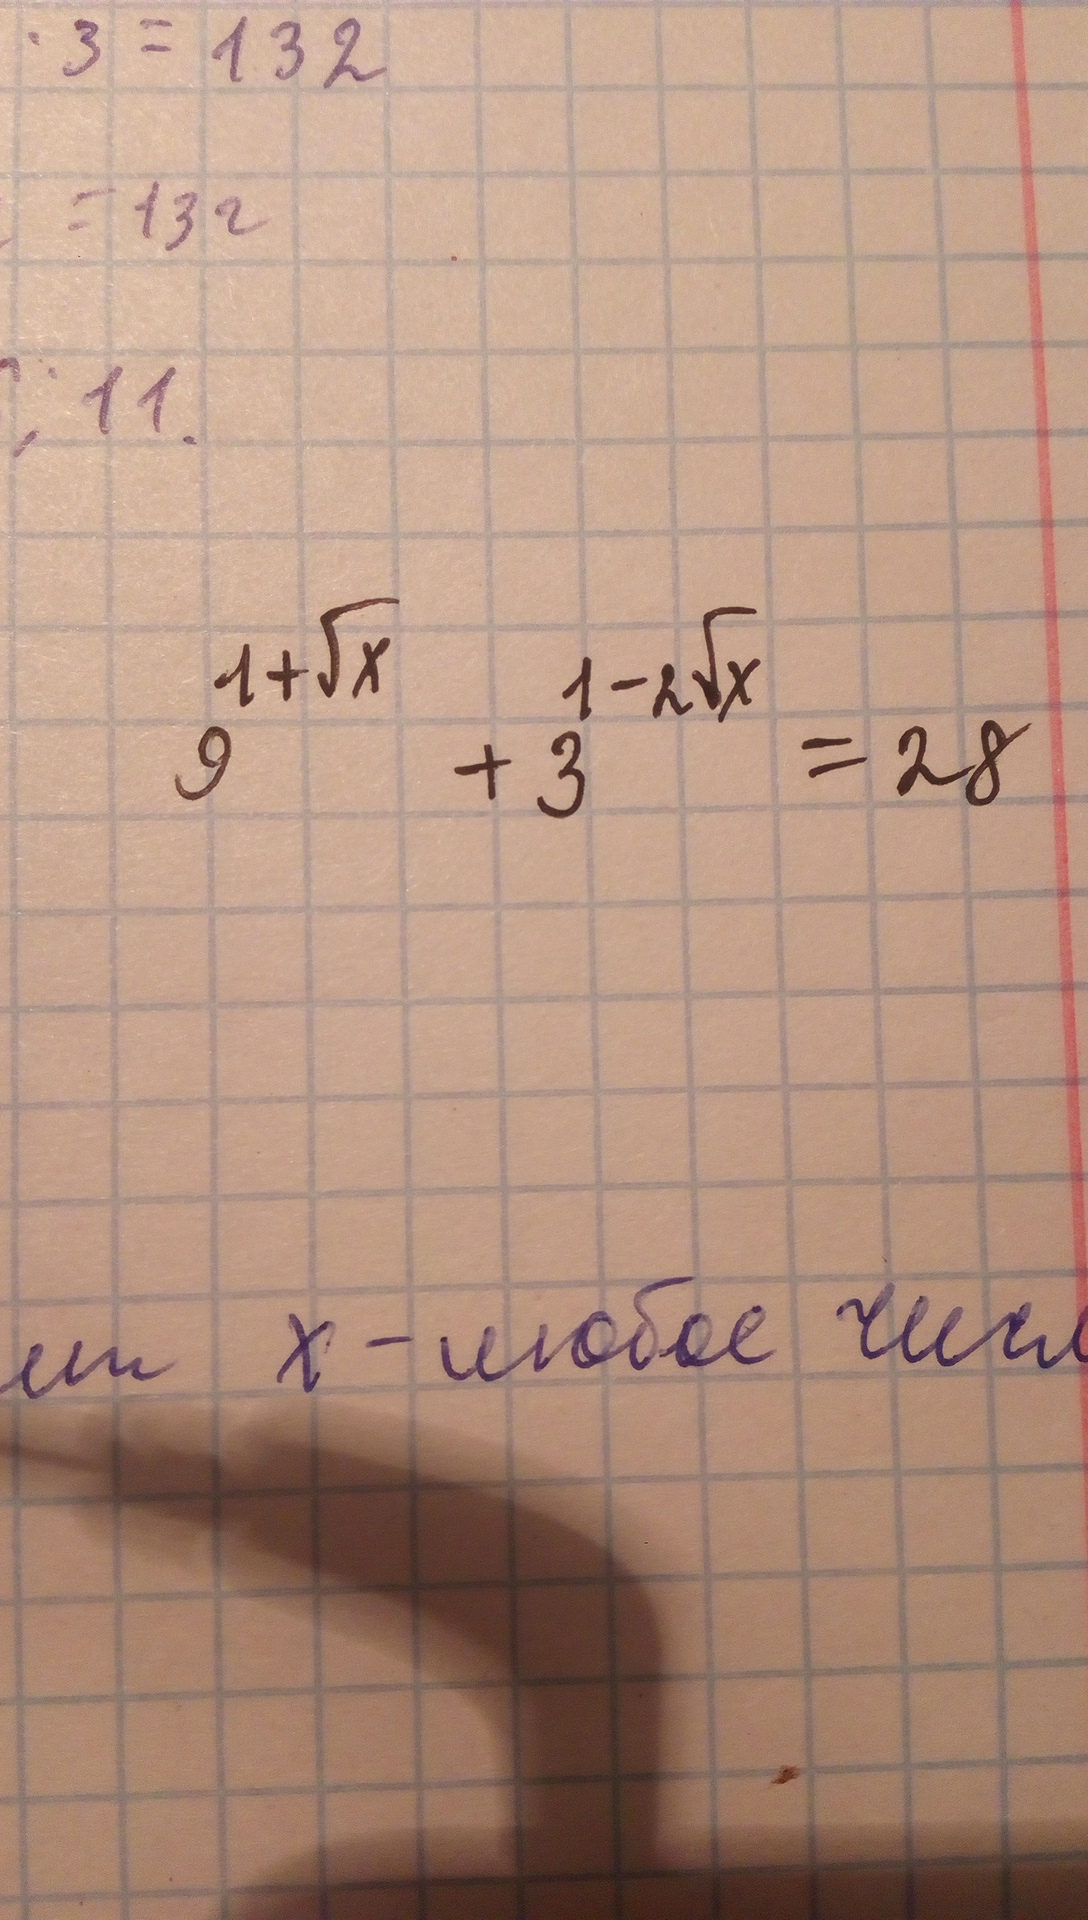 · 3 = 132
= 132
; 11.
9^{1+√x} + 3^{1-2√x} = 28
x - любое